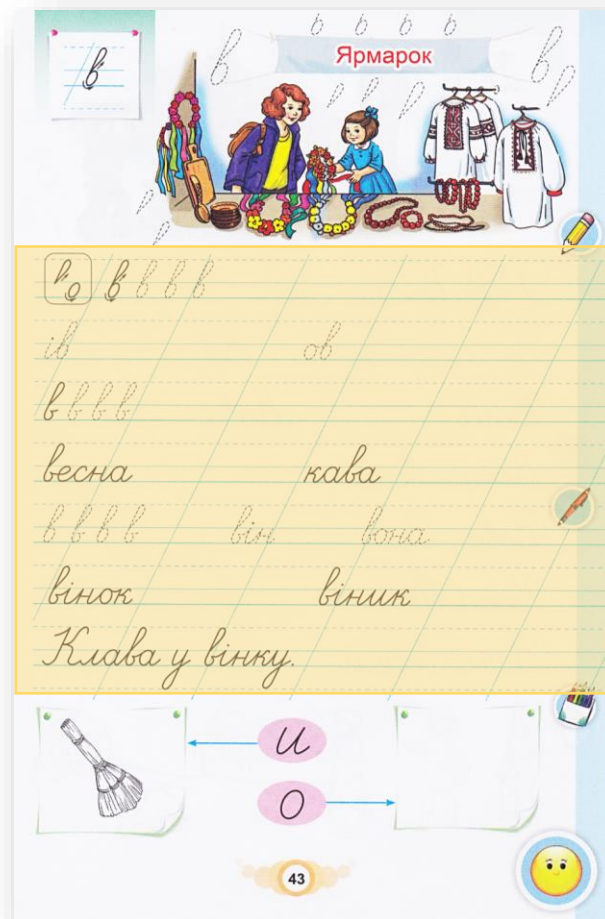 в
в в в в
Ярмарок
в в в в в
ів ов
в в в в
весна кава
в в в в він вона
вінок віник
Клава у вінку.
и
о
43